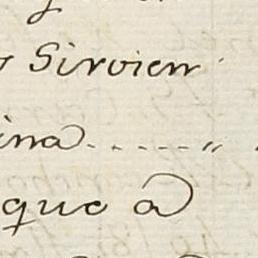 Sirvien
ina.....„
que a